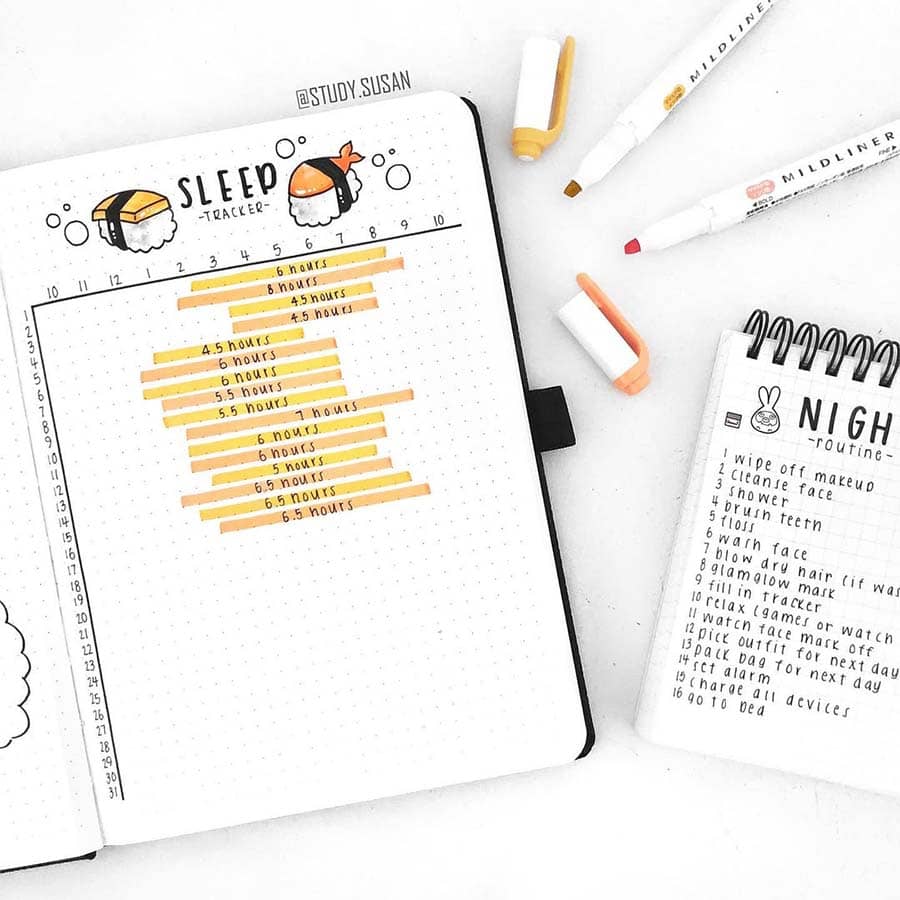 @STUDY.SUSAN
SLEEP
-TRACKER-
10 11 12 1 2 3 4 5 6 7 8 9 10
1
2
3
4
5
6
7
8
9
10
11
12
13
14
15
16
17
18
19
20
21
22
23
24
25
26
27
28
29
30
31
6 hours
8 hours
4.5 hours
4.5 hours
4.5 hours
6 hours
6 hours
5.5 hours
5.5 hours
7 hours
6 hours
6 hours
5 hours
6.5 hours
6.5 hours
6.5 hours
MILDLINER
MILDLINER
FINE
BOLD
NIGH
-routine-
1 wipe off makeup
2 cleanse face
3 shower
4 brush teeth
5 floss
6 wash face
7 blow dry hair (if was
8 glamglow mask
9 fill in tracker
10 relax (games or watch
11 watch face mask off
12 pick outfit for next day
13 pack bag for next day
14 set alarm
15 charge all devices
16 go to bed